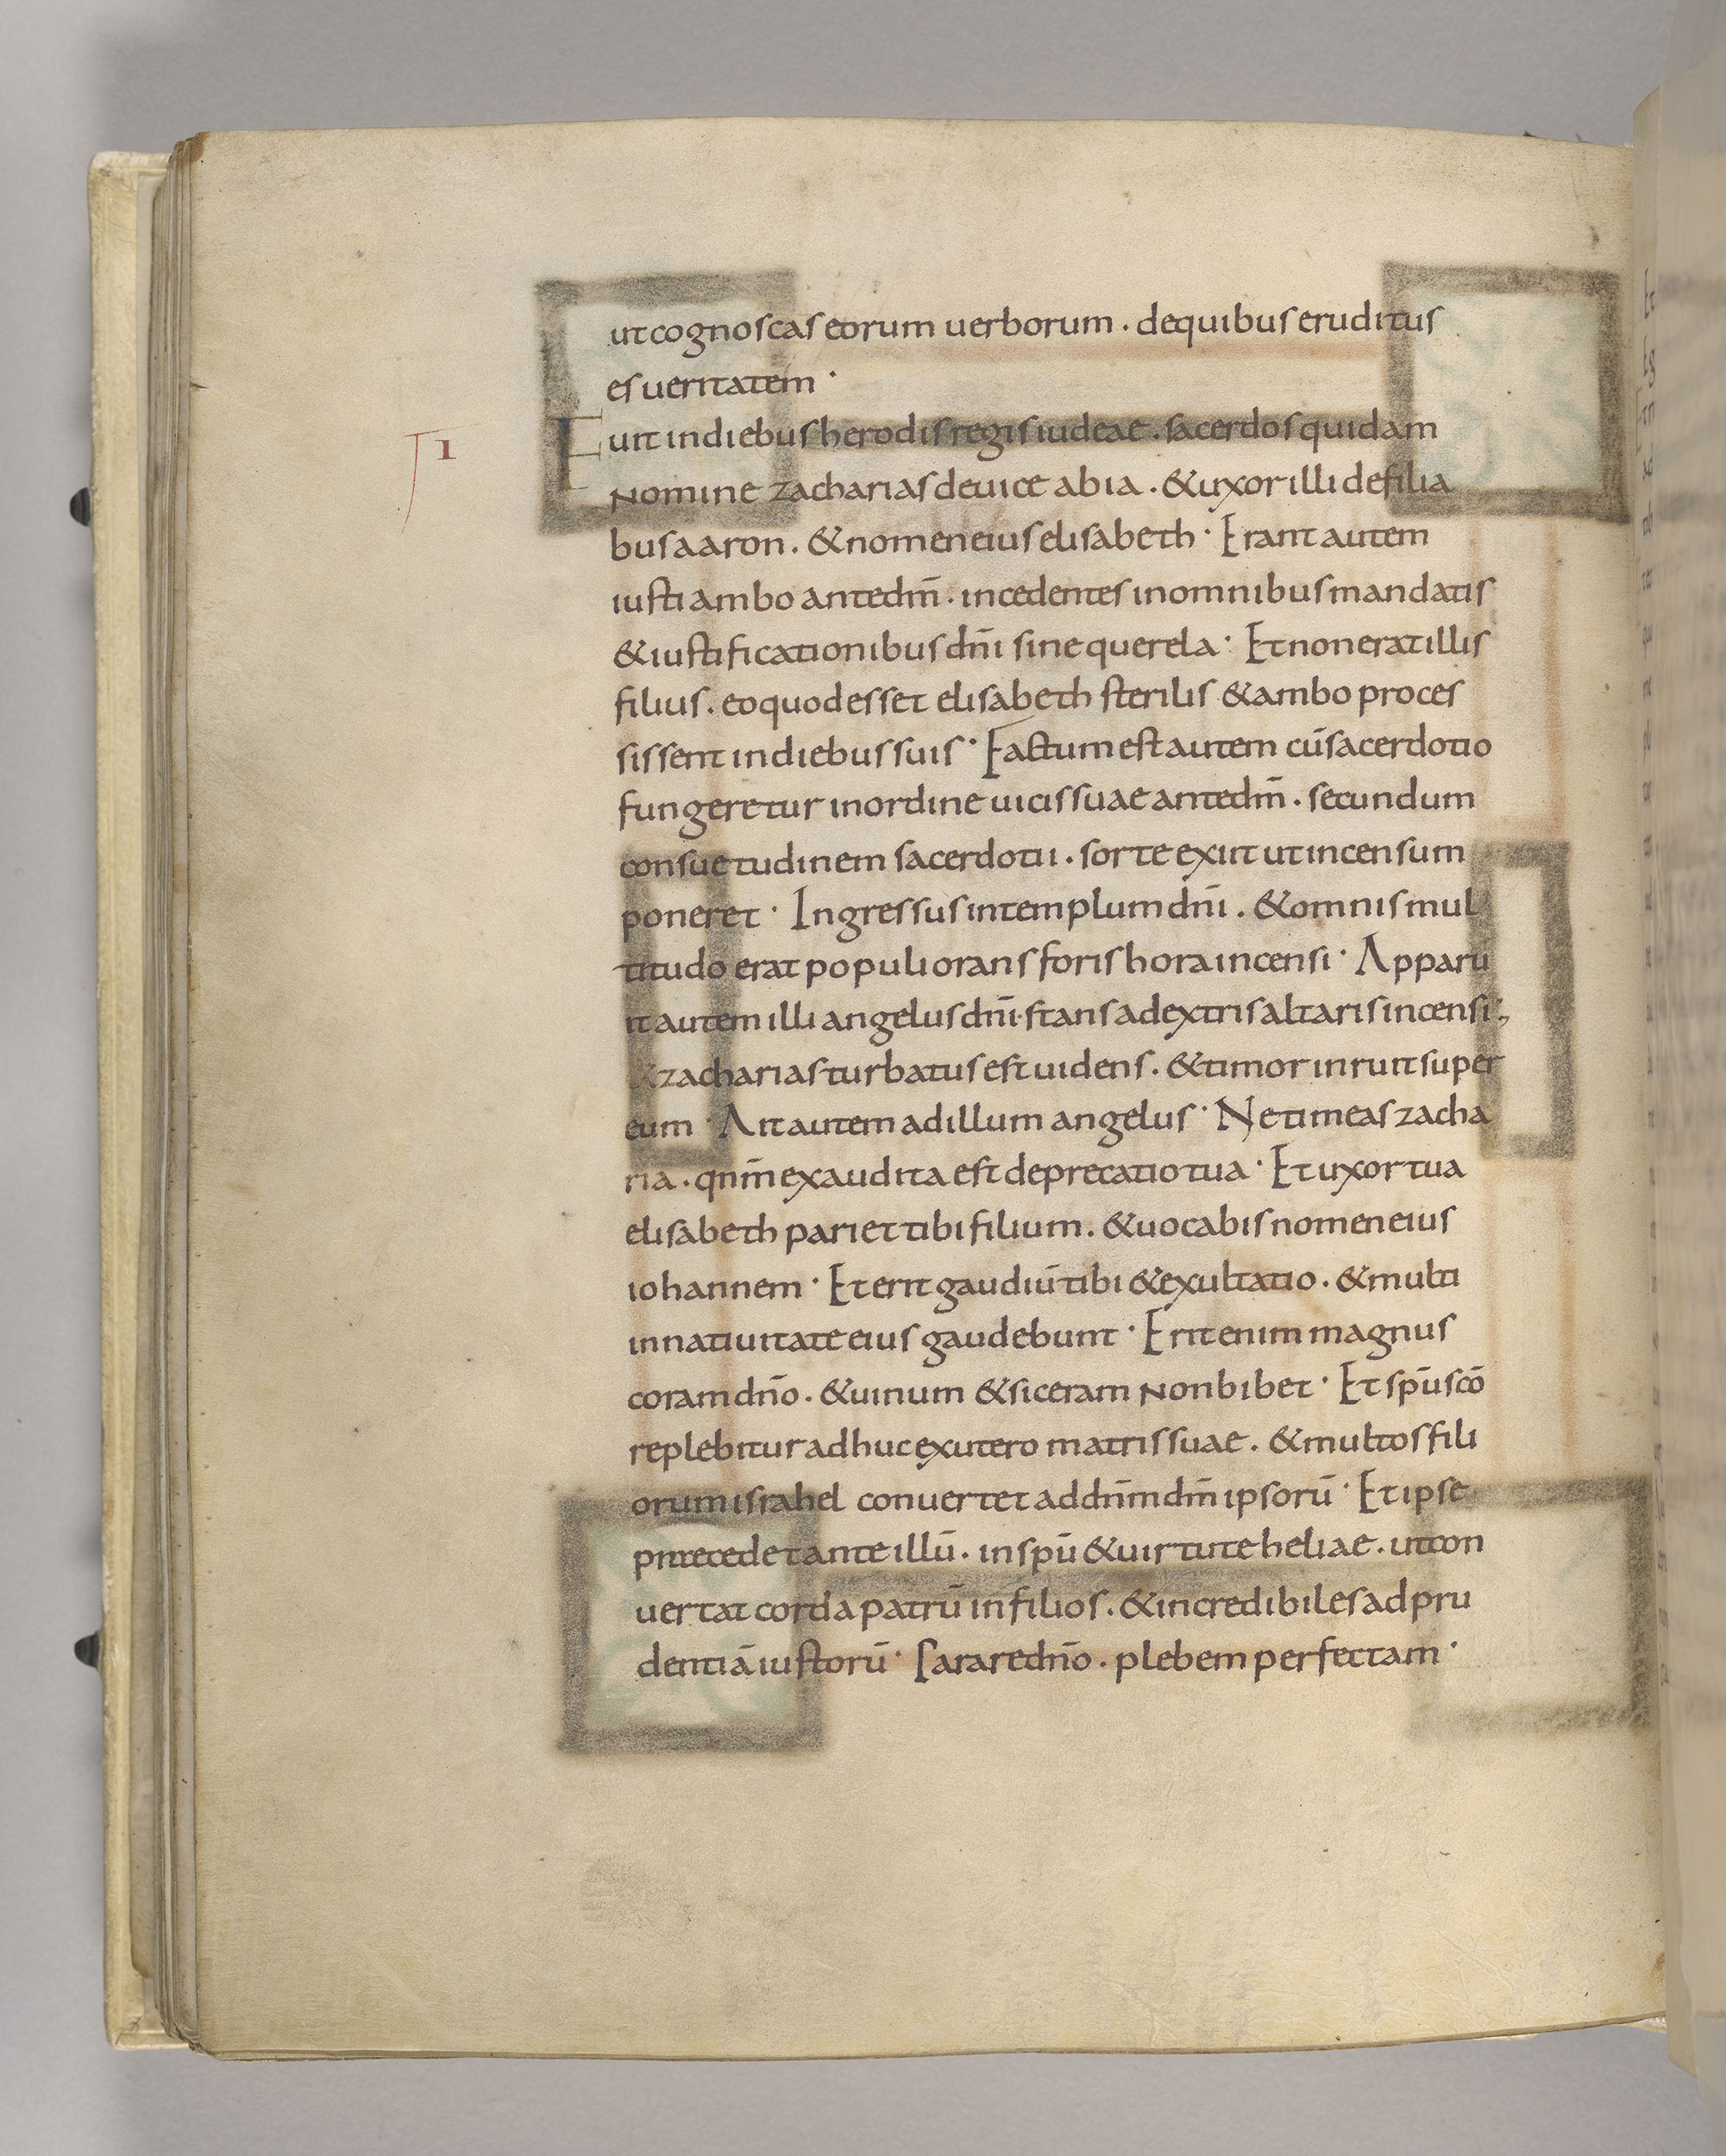 ut cognoscas eorum uerborum . de quibus eruditus
es ueritatem ·
I Fuit in diebus herodis regis iudeae . sacerdos quidam
nomine zacharias de uice abia . & uxor illi de filia
bus aaron . & nomen eius elisabeth · Erant autem
iusti ambo ante dm̄ . incedentes in omnibus mandatis
& iustificationibus dn̄i sine querela · Et non erat illis
filius . eo quod esset elisabeth sterilis & ambo proces
sissent in diebus suis · Factum est autem cū sacerdotio
fungeretur in ordine uicis suae ante dm̄ . secundum
consuetudinem sacerdotii . sorte exiit ut incensum
poneret · Ingressus in templum dn̄i . & omnis mul
titudo erat populi orans foris hora incensi · Apparu
it autem illi angelus dn̄i · stans a dextris altaris incensi ;
& zacharias turbatus est uidens . & timor inruit super
eum · Ait autem ad illum angelus · Ne timeas zacha
ria . qnm̄ exaudita est deprecatio tua · Et uxor tua
elisabeth pariet tibi filium . & uocabis nomen eius
iohannem · Et erit gaudiū tibi & exultatio . & multi
in natiuitate eius gaudebunt · Erit enim magnus
coram dn̄o . & uinum & siceram non bibet · Et sp̄u scō
replebitur adhuc ex utero matris suae . & multos fili
orum israhel conuertet ad dn̄m dm̄ ipsorū · Et ipse
precedet ante illū . in sp̄u & uirtute heliae . ut con
uertat corda patrū in filios . & incredibiles ad pru
dentiā iustorū · Parare dn̄o . plebem perfectam ·